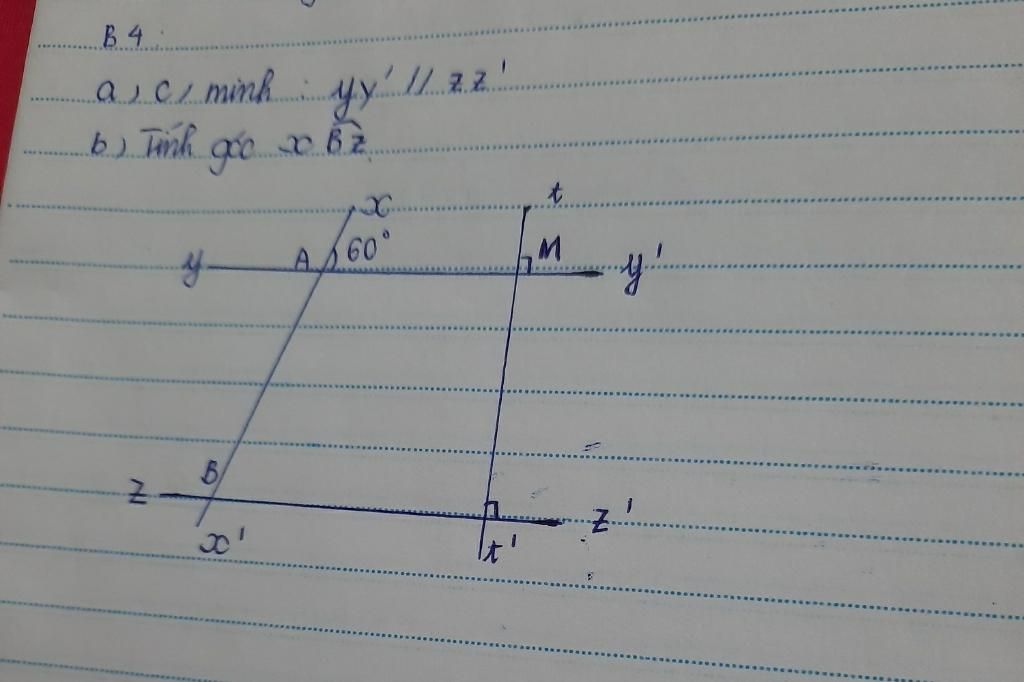 B 4 :
a, c, minh : yy' // zz'
b, Tính góc xBz
x
t
y
A
60°
M
y'
B
z
x'
t'
z'